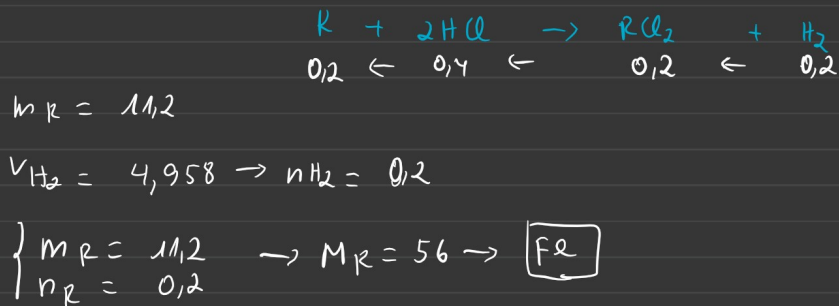 R + 2HCl → RCl₂ + H₂
0,2 ← 0,4 ← 0,2 ← 0,2
m R = 11,2
V H₂ = 4,958 → nH₂ = 0,2
{ m R = 11,2 → M R = 56 → Fe
n R = 0,2